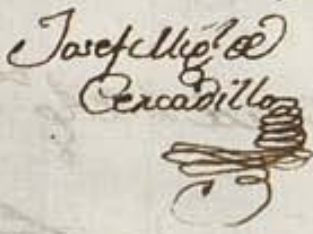 Josef Migl de
Cercadillo